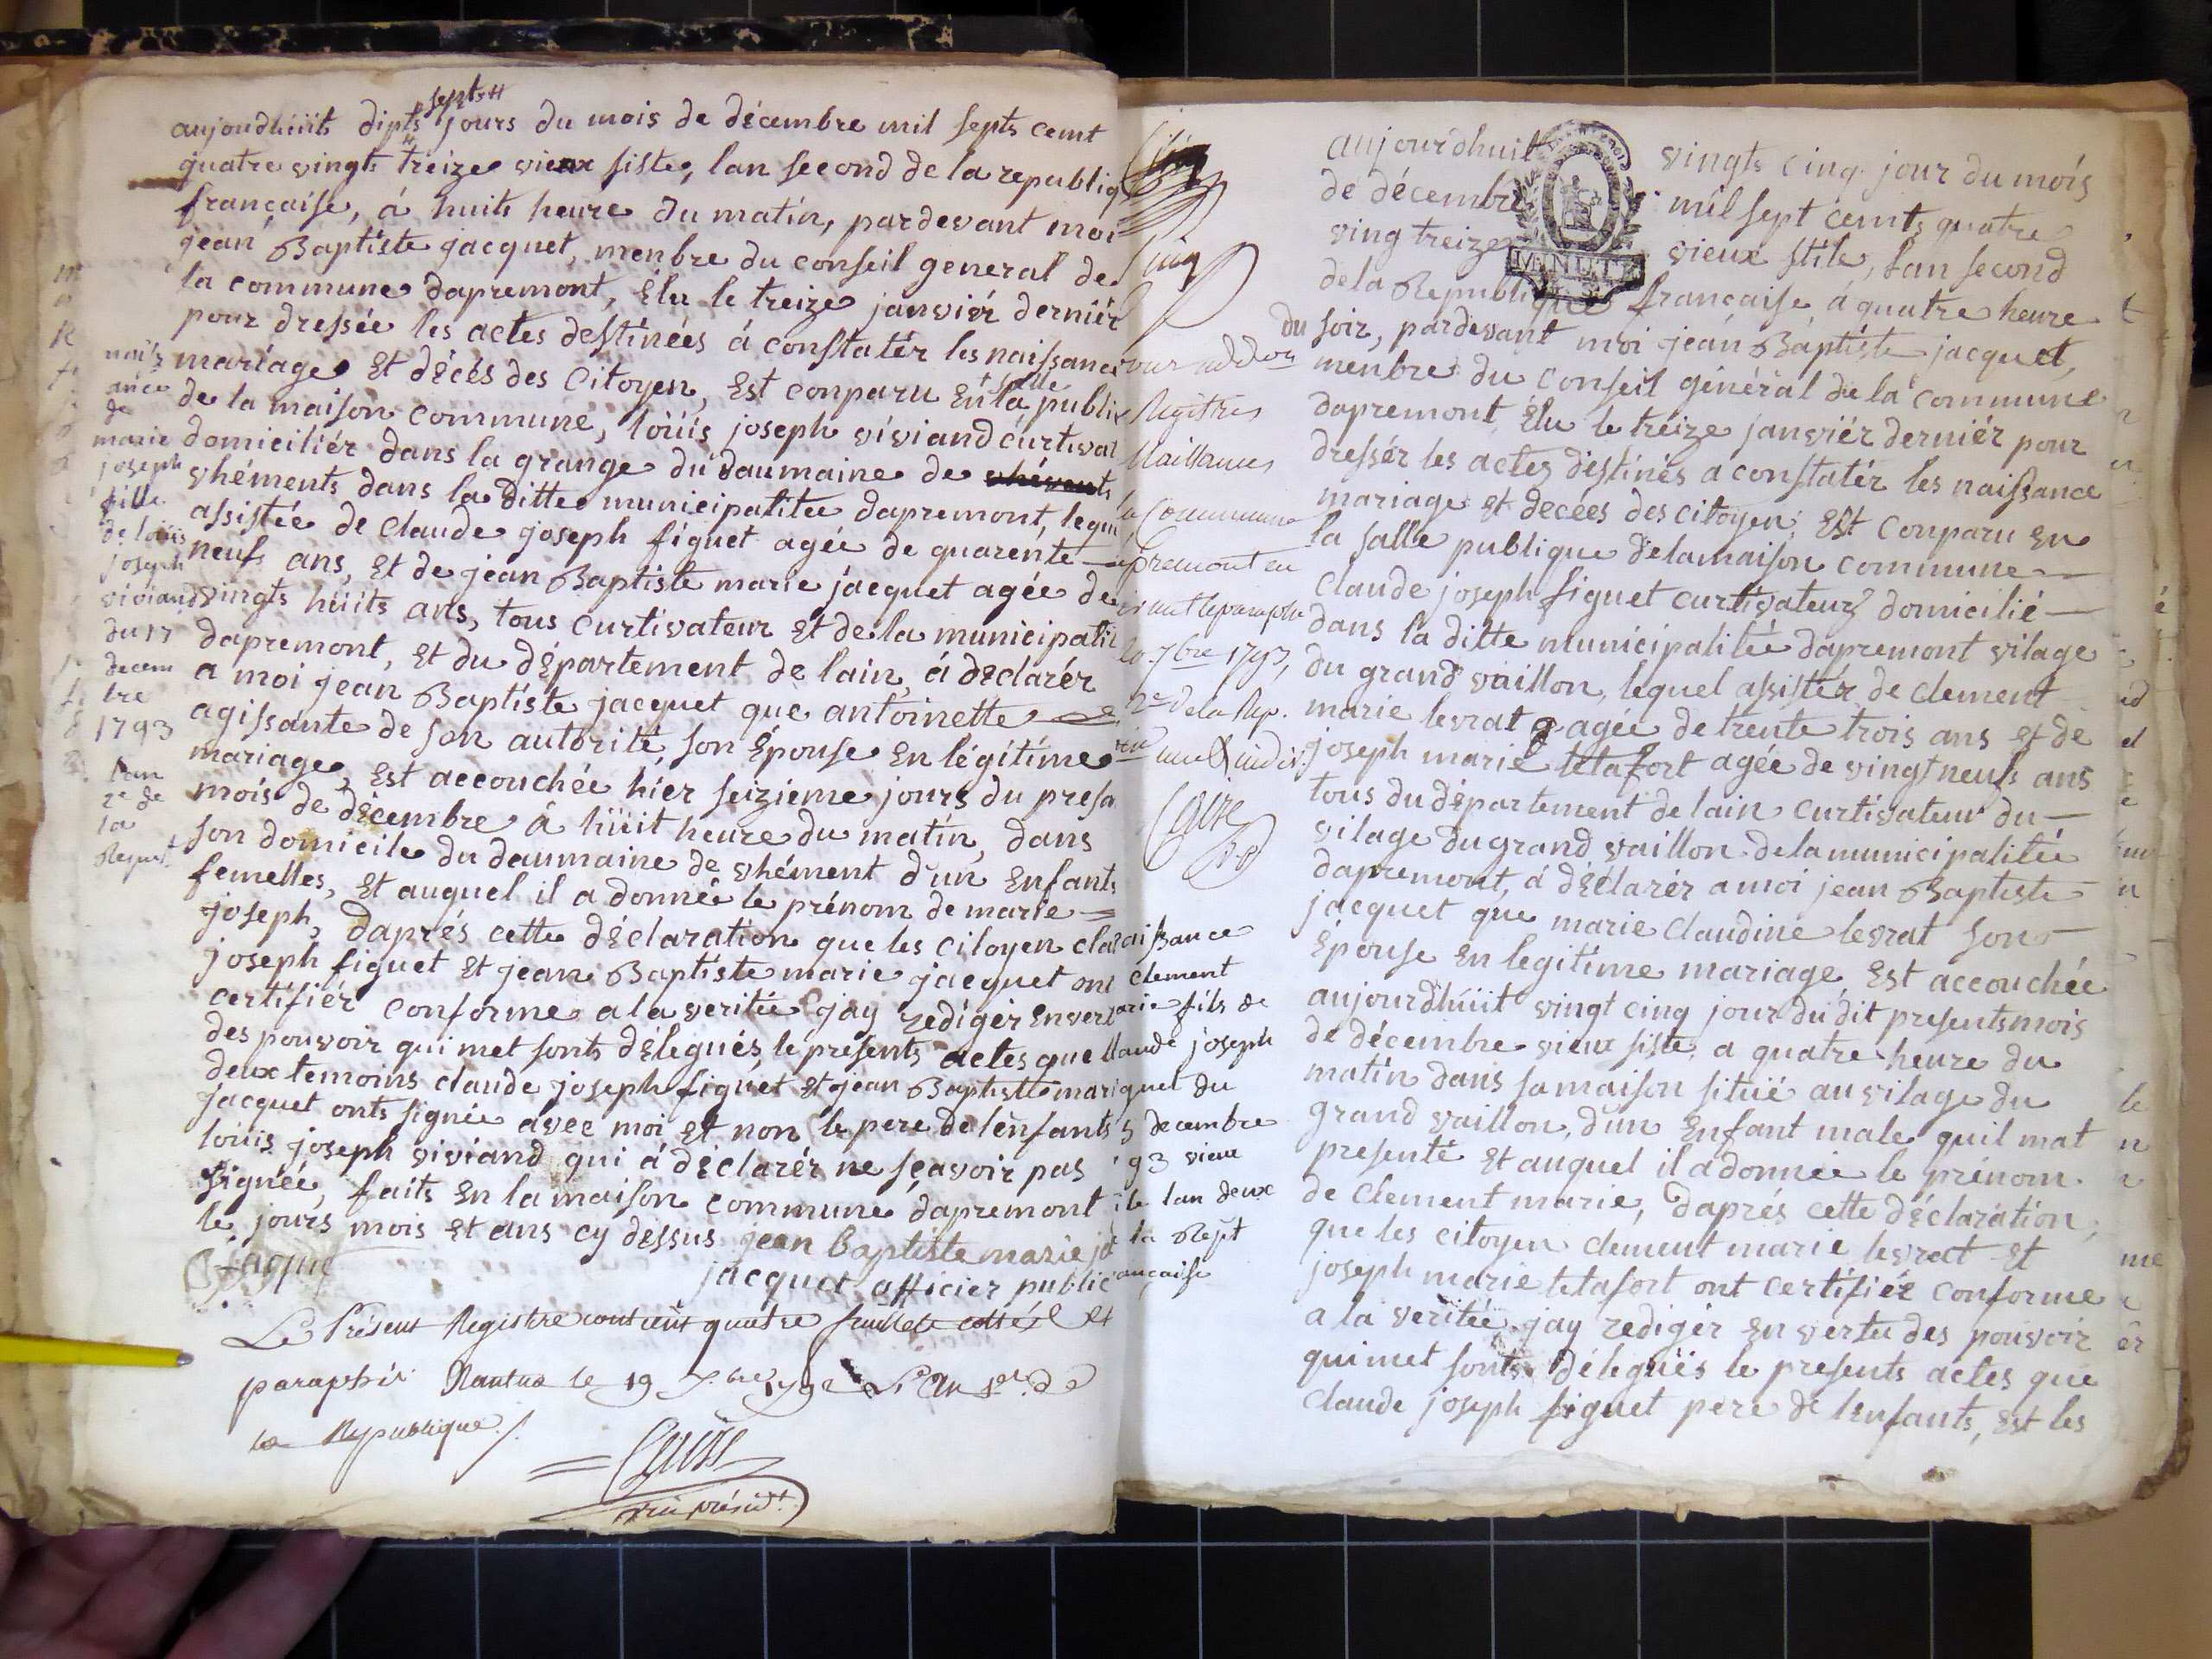 aujoudhüits dipts septs jours du mois de décembre mil septs cemt
quatre vingts treize vieux siste, lan second de la republiq
française, á huits heure du matin, pardevant moi
jean Baptiste jacquet, menbre du conseil general de
la commune dapremont, Élu le treize janviér derniér
pour dressée les actes destinées á constatér les naissance
mariage Et décés des Citoyen, Est conparu En la salle publi
de la maison commune, loüis joseph viviand curtivat
domiciliér dans la grange du daumaine de
vhéments dans la ditte municipalitee dapremont, lequ
assistée de Claude joseph figuet agée de quarente
neufs ans, Et de jean Baptiste marie jacquet agée de
vingts huits ans, tous curtivateur Et de la municipali
dapremont, Et du département de lain, á déclarér
a moi jean Baptiste jacquet que antoinette
agissante de son autorité, son Épouse En légitime
mariage, Est accouchée hier seizieme jours du presa
mois de décembre á hüit heure du matin, dans
son domicile du daumaine de vhément d'un Enfants
femelles, Et auquel il a donnée le prénom de marie =
joseph, daprés cette déclaration que les citoyen cla
joseph figuet Et jean Baptiste marie jacquet ont
certifiér conforme a la veritée jay redigér En vert
des pouvoir qui met sonts délegués, le présents actes que
deux temoins claude joseph figuet Et jean Baptistte mari
jacquet onts signée avec moi Et non le pere de lenfants
loüis joseph viviand qui á déclarér ne sçavoir pas
signée, faits En la maison commune dapremont
le jours mois Et ans cy dessus jean baptiste marie ja
jacquet officier public
Le Présent Registre contient quatre feuillets cottés et
paraphés Nantua le 19 7bre 179 L'an 1er de
la République ./.
vice présidt.
naiss
ance
de
marie
joseph
fille
de loüis
joseph
viviand
du 17
decem
bre
1793
lan
2e de
la
Requt.
Cinq
Registres
Naissances
la Commune
apremont en
7bre 1793,
2e de la Rep.
une & indiv.
aissance
clement
arie fils de
laude joseph
guet du
5 decembre
93 vieux
ile lan deux
la Rept
ançaise
aujourdhuit vingts cinq jour du mois
de décembre mil sept cemts quatre
ving treize vieux stile, lan second
de la Republique française, á quatre heure
du soir, pardevant moi jean Baptiste jacquet,
menbre du Conseil général de la commune
dapremont Élu le treize janviér derniér pour
dressér les actes distinés a constatér les naissance
mariage Et decées des citoyen, Est Conparu En
la salle publique de la maison commune
Claude joseph figuet curtivateur domicilié
dans la ditte municipalitée dapremont vilage
du grand vaillon, lequel assistér de clement
marie levrat agée de trente trois ans Et de
joseph marie letafort agée de vingt neufs ans
tous du département de lain curtivateur du
vilage du grand vaillon de la municipalitée
dapremont, á déclarér a moi jean Baptiste
jacquet que marie claudine levrat son
Épouse En legitime mariage, Est accouchée
aujourdhüit vingt cinq jour du dit presents mois
de décembre vieux siste, a quatre heure du
matin dans sa maison situé au vilage du
grand vaillon, d'un Enfant male quil mat
presenté Et auquel il a donnée le prénom
de Clement marie, daprés cette déclaration,
que les citoyen clement marie levrat Et
joseph marie letafort ont certifiér conforme
a la veritée jay redigér En vertu des pouvoir
qui met sonts délegüés le presents actes que
Claude joseph figuet pere de lenfants, Est les
MINUTE